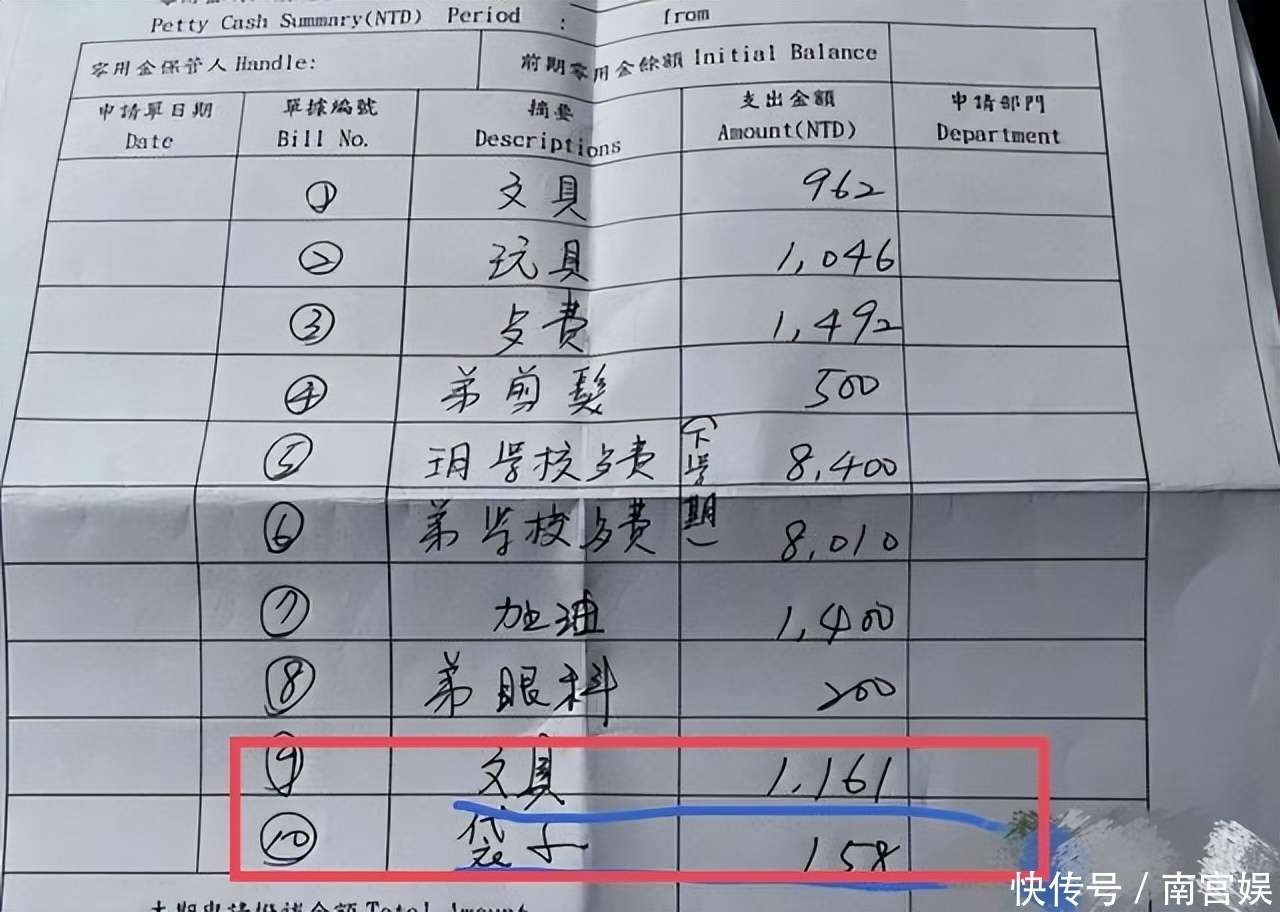 Petty Cash Summary(NTD) Period : from
零用金保管人 Handle: 前期零用金餘額 Initial Balance
申請單日期 單據編號 摘要 支出金額 申請部門
Date Bill No. Descriptions Amount(NTD) Department
① 文具 962
② 玩具 1,046
③ 費 1,492
④ 弟剪髮 500
⑤ 玥学校 費 (下学期) 8,400
⑥ 弟学校 費 8,010
⑦ 加油 1,400
⑧ 弟眼科 200
⑨ 文具 1,161
⑩ 袋子 158
Total Amount
快传号 / 南宫娱